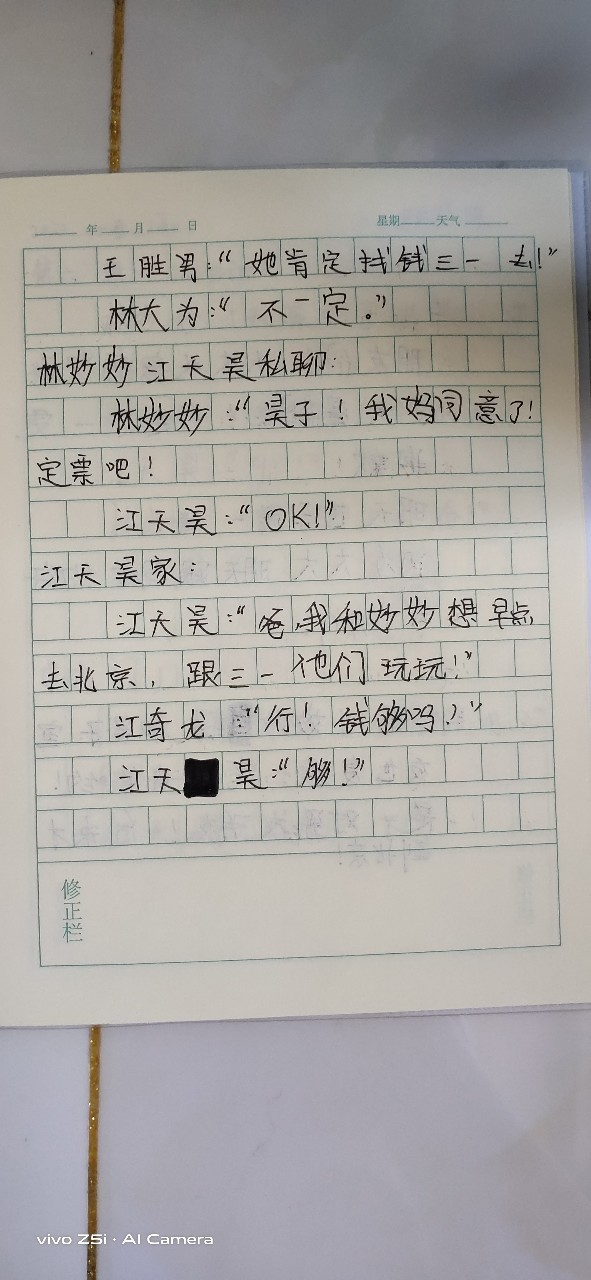 年 月 日 星期 天气
王胜男：“她肯定找钱三一去！”
林大为：“不一定。”
林妙妙江天昊私聊：
林妙妙：“昊子！我妈同意了！
定票吧！
江天昊：“OK！”
江天昊家：
江天昊：“爸，我和妙妙想早点
去北京，跟三一他们玩玩！”
江奇龙：“行！钱够吗？”
江天昊：“够！”
修正栏
vivo Z5i · AI Camera